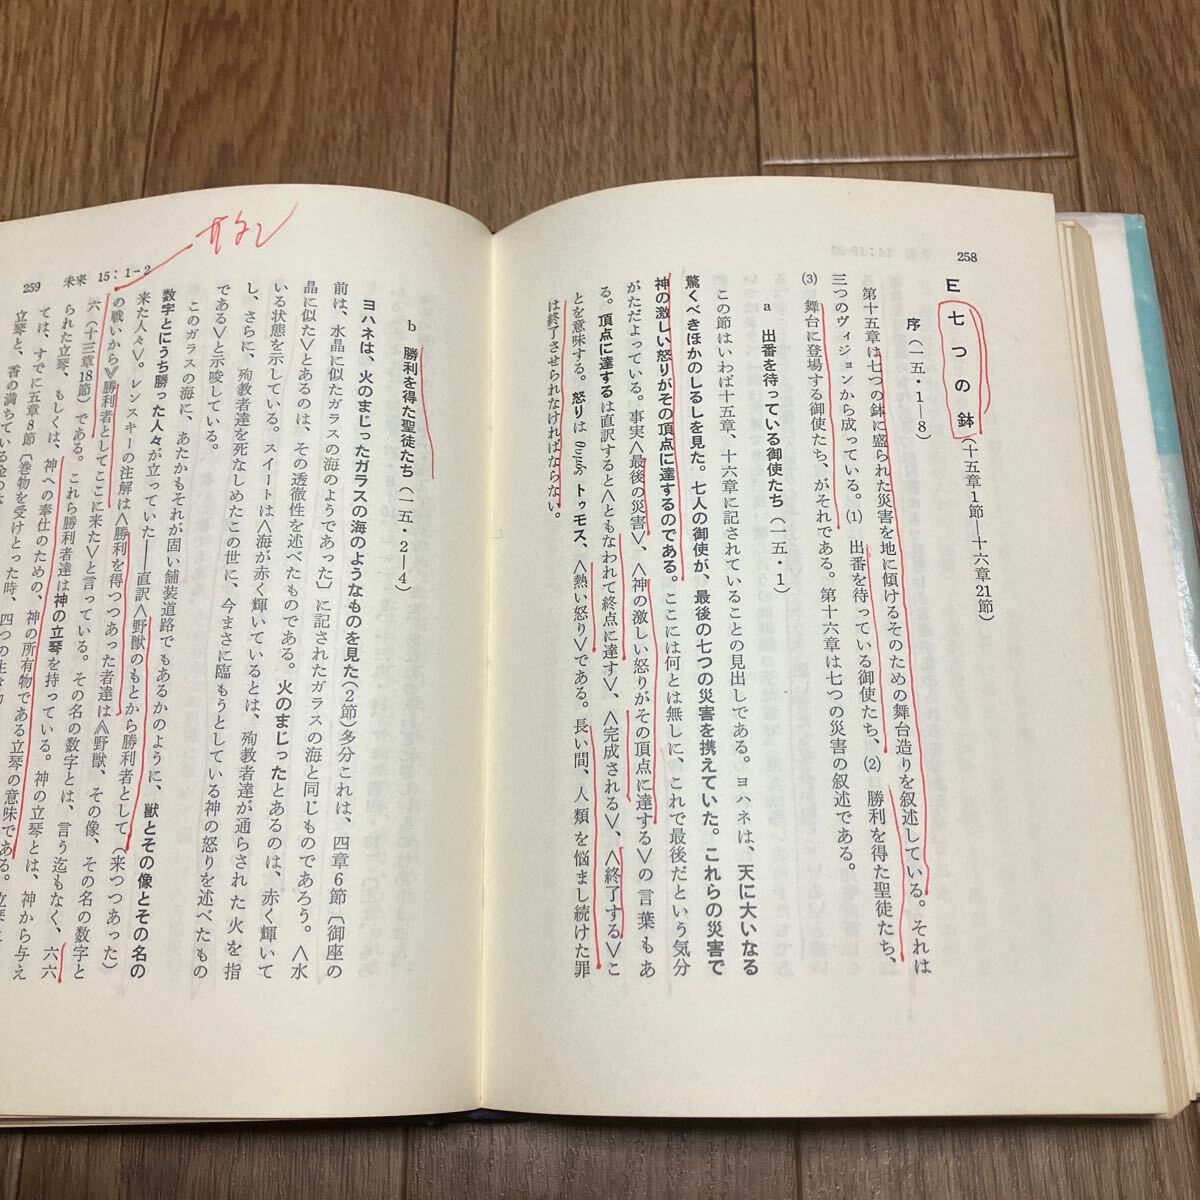 258
E 七つの鉢（十五章1節―十六章21節）
序（一五・1―8）
第十五章は七つの鉢に盛られた災害を地に傾けるそのための舞台造りを叙述している。それは
三つのヴィジョンから成っている。(1) 出番を待っている御使たち、(2) 勝利を得た聖徒たち、
(3) 舞台に登場する御使たち、がそれである。第十六章は七つの災害の叙述である。
a 出番を待っている御使たち（一五・1）
この節はいわば十五章、十六章に記されていることの見出しである。ヨハネは、天に大いなる
驚くべきほかのしるしを見た。七人の御使が、最後の七つの災害を携えていた。これらの災害で
神の激しい怒りがその頂点に達するのである。ここには何とは無しに、これで最後だという気分
がただよっている。事実＜最後の災害＞、＜神の激しい怒りがその頂点に達する＞の言葉もあ
る。頂点に達するは直訳すると＜ともなわれて終点に達す＞、＜完成される＞、＜終了する＞こ
とを意味する。怒りは θυμός トゥモス、＜熱い怒り＞である。長い間、人類を悩まし続けた罪
は終了させられなければならない。
259 未来 15：1-2
b 勝利を得た聖徒たち（一五・2―4）
ヨハネは、火のまじったガラスの海のようなものを見た（2節）多分これは、四章6節〔御座の
前は、水晶に似たガラスの海のようであった〕に記されたガラスの海と同じものであろう。＜水
晶に似た＞とあるのは、その透徹性を述べたものである。火のまじったとあるのは、赤く輝いて
いる状態を示している。スイートは＜海が赤く輝いているとは、殉教者達が通らされた火を指
し、さらに、殉教者達を死なしめたこの世に、今まさに臨もうとしている神の怒りを述べたもの
である＞と示唆している。
このガラスの海に、あたかもそれが固い舗装道路でもあるかのように、獣とその像とその名の
数字とにうち勝った人々が立っていた――直訳＜野獣のもとから勝利者として（来つつあった）
来た人々＞。レンスキーの注解は＜勝利を得つつあった者達は≪野獣、その像、その名の数字と
の戦いから≫勝利者としてここに来た＞と言っている。その名の数字とは、言う迄もなく、六六
六（十三章18節）である。これら勝利者達は神の立琴を持っている。神の立琴とは、神から与え
られた立琴、もしくは、神への奉仕のための、神の所有物である立琴の意味である。立琴
ては、すでに五章8節〔巻物を受けとった時、四つの生き物
立琴と、香の満ちている金の